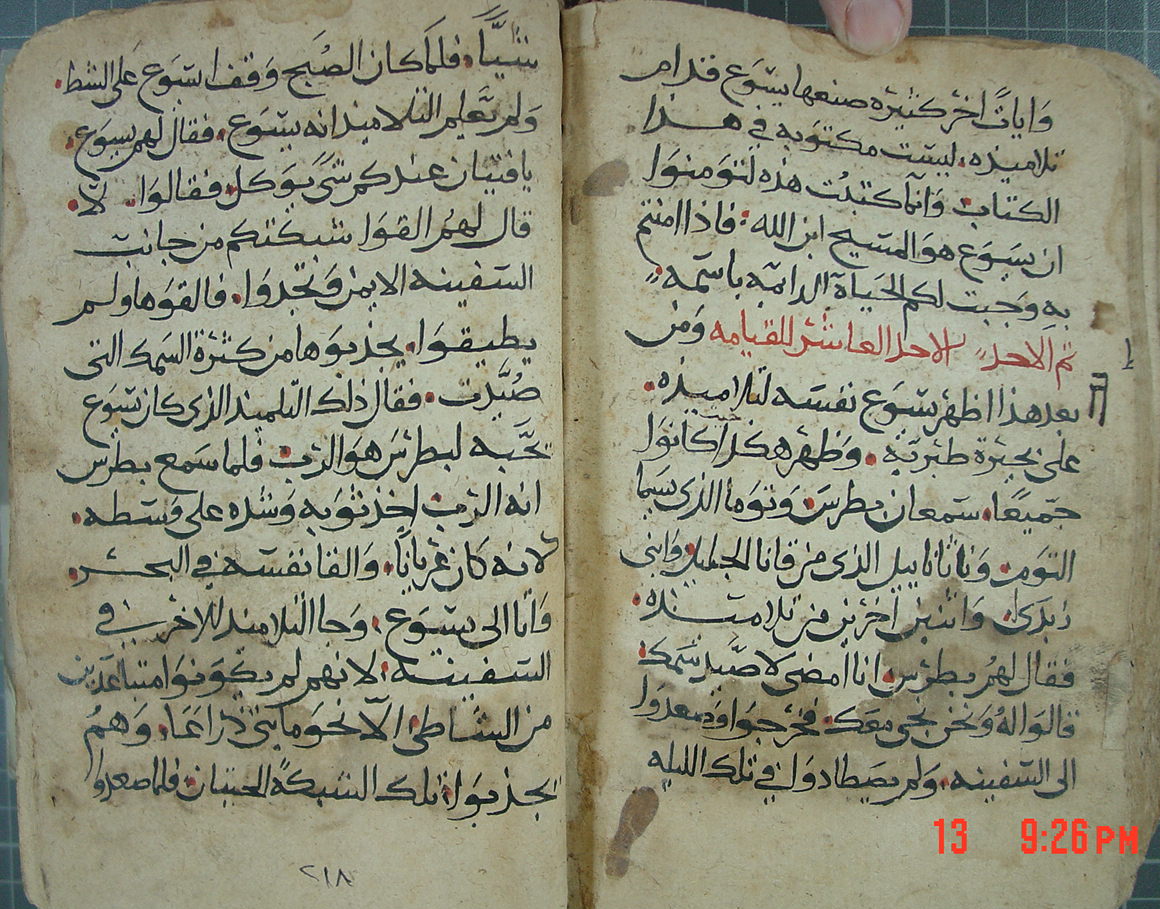 وايات اخر كثيره صنعها يسوع قدام
تلاميذه. ليست مكتوبه في هذا
الكتاب. وانما كتبت هذه لتومنوا
ان يسوع هو المسيح ابن الله: فاذا امنتم
به وجبت لكم الحياة الدايمه باسمه
تم الاحد الاحد العاشر للقيامه ومن
بعد هذا اظهر يسوع نفسه لتلاميذه.
على بحيرة طبرية. وظهر هكذا كانوا
جميعًا. سمعان بطرس. وتوما الذي سما
التومن. وناثانابيل الذي من قانا الجليل. وابني
زبدى. واثنين اخرين من تلاميذه.
فقال لهم بطرس. انا امضى لاصيد سمك.
قالوا له ونحن نجي معك. فخرجوا وصعدوا
الى السفينه. ولم يصطادوا في تلك الليله
شيًا. فلما كان الصبح وقف يسوع على الشط.
ولم تعلم التلاميذ انه يسوع. فقال لهم يسوع.
يافتيان عندكم شي يوكل. فقالوا. لا.
قال لهم القوا شبكتكم من جانب
السفينه الايمن وتجدوا. فالقوها ولم
يطيقوا. يجذبوها من كثرة السمك التي
صُيدت. فقال ذلك التلميذ الذي كان يسوع
تحبه لبطرس هو الرب. فلما سمع بطرس
انه الرب اخذ ثوبه وشده على وسطه.
لانه كان عريانًا. والقا نفسه في البحر.
واتا الى يسوع. وجا التلاميذ الاخر في
السفينه. لانهم لم يكونوا متباعدين
من الشاطئ الا نحو مايتى ذراعًا. وهم
يجذبوا. تلك الشبكة الحيتان. فلما صعدوا
٢١٨
13 9:26PM